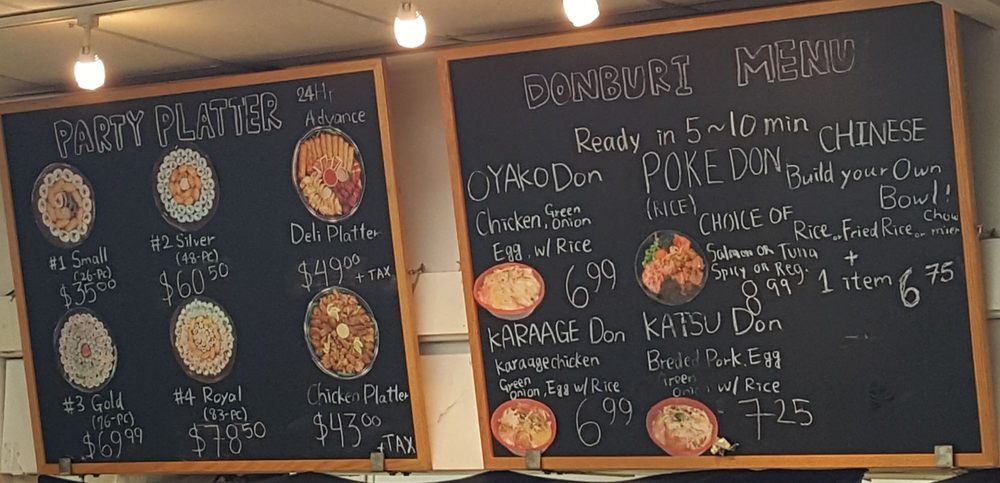 PARTY PLATTER
24Hr
Advance
#1 Small
(26-pc)
$35.00
#2 Silver
(48-pc)
$60.50
Deli Platter
$49.00 + TAX
#3 Gold
(76-pc)
$69.99
#4 Royal
(83-pc)
$78.50
Chicken Platter
$43.00
+TAX
DONBURI MENU
Ready in 5~10 min
OYAKO Don
Chicken, Green Onion
Egg, w/ Rice
6.99
POKE DON
(RICE)
CHOICE OF
Salmon or Tuna
Spicy or Reg.
8.99
CHINESE
Build your Own
Bowl!
Rice or Fried Rice or Chow mien
+
1 item 6.75
KARAAGE Don
karaage chicken
Green Onion, Egg w/ Rice
6.99
KATSU Don
Breded Pork. Egg
Green w/ Rice
7.25